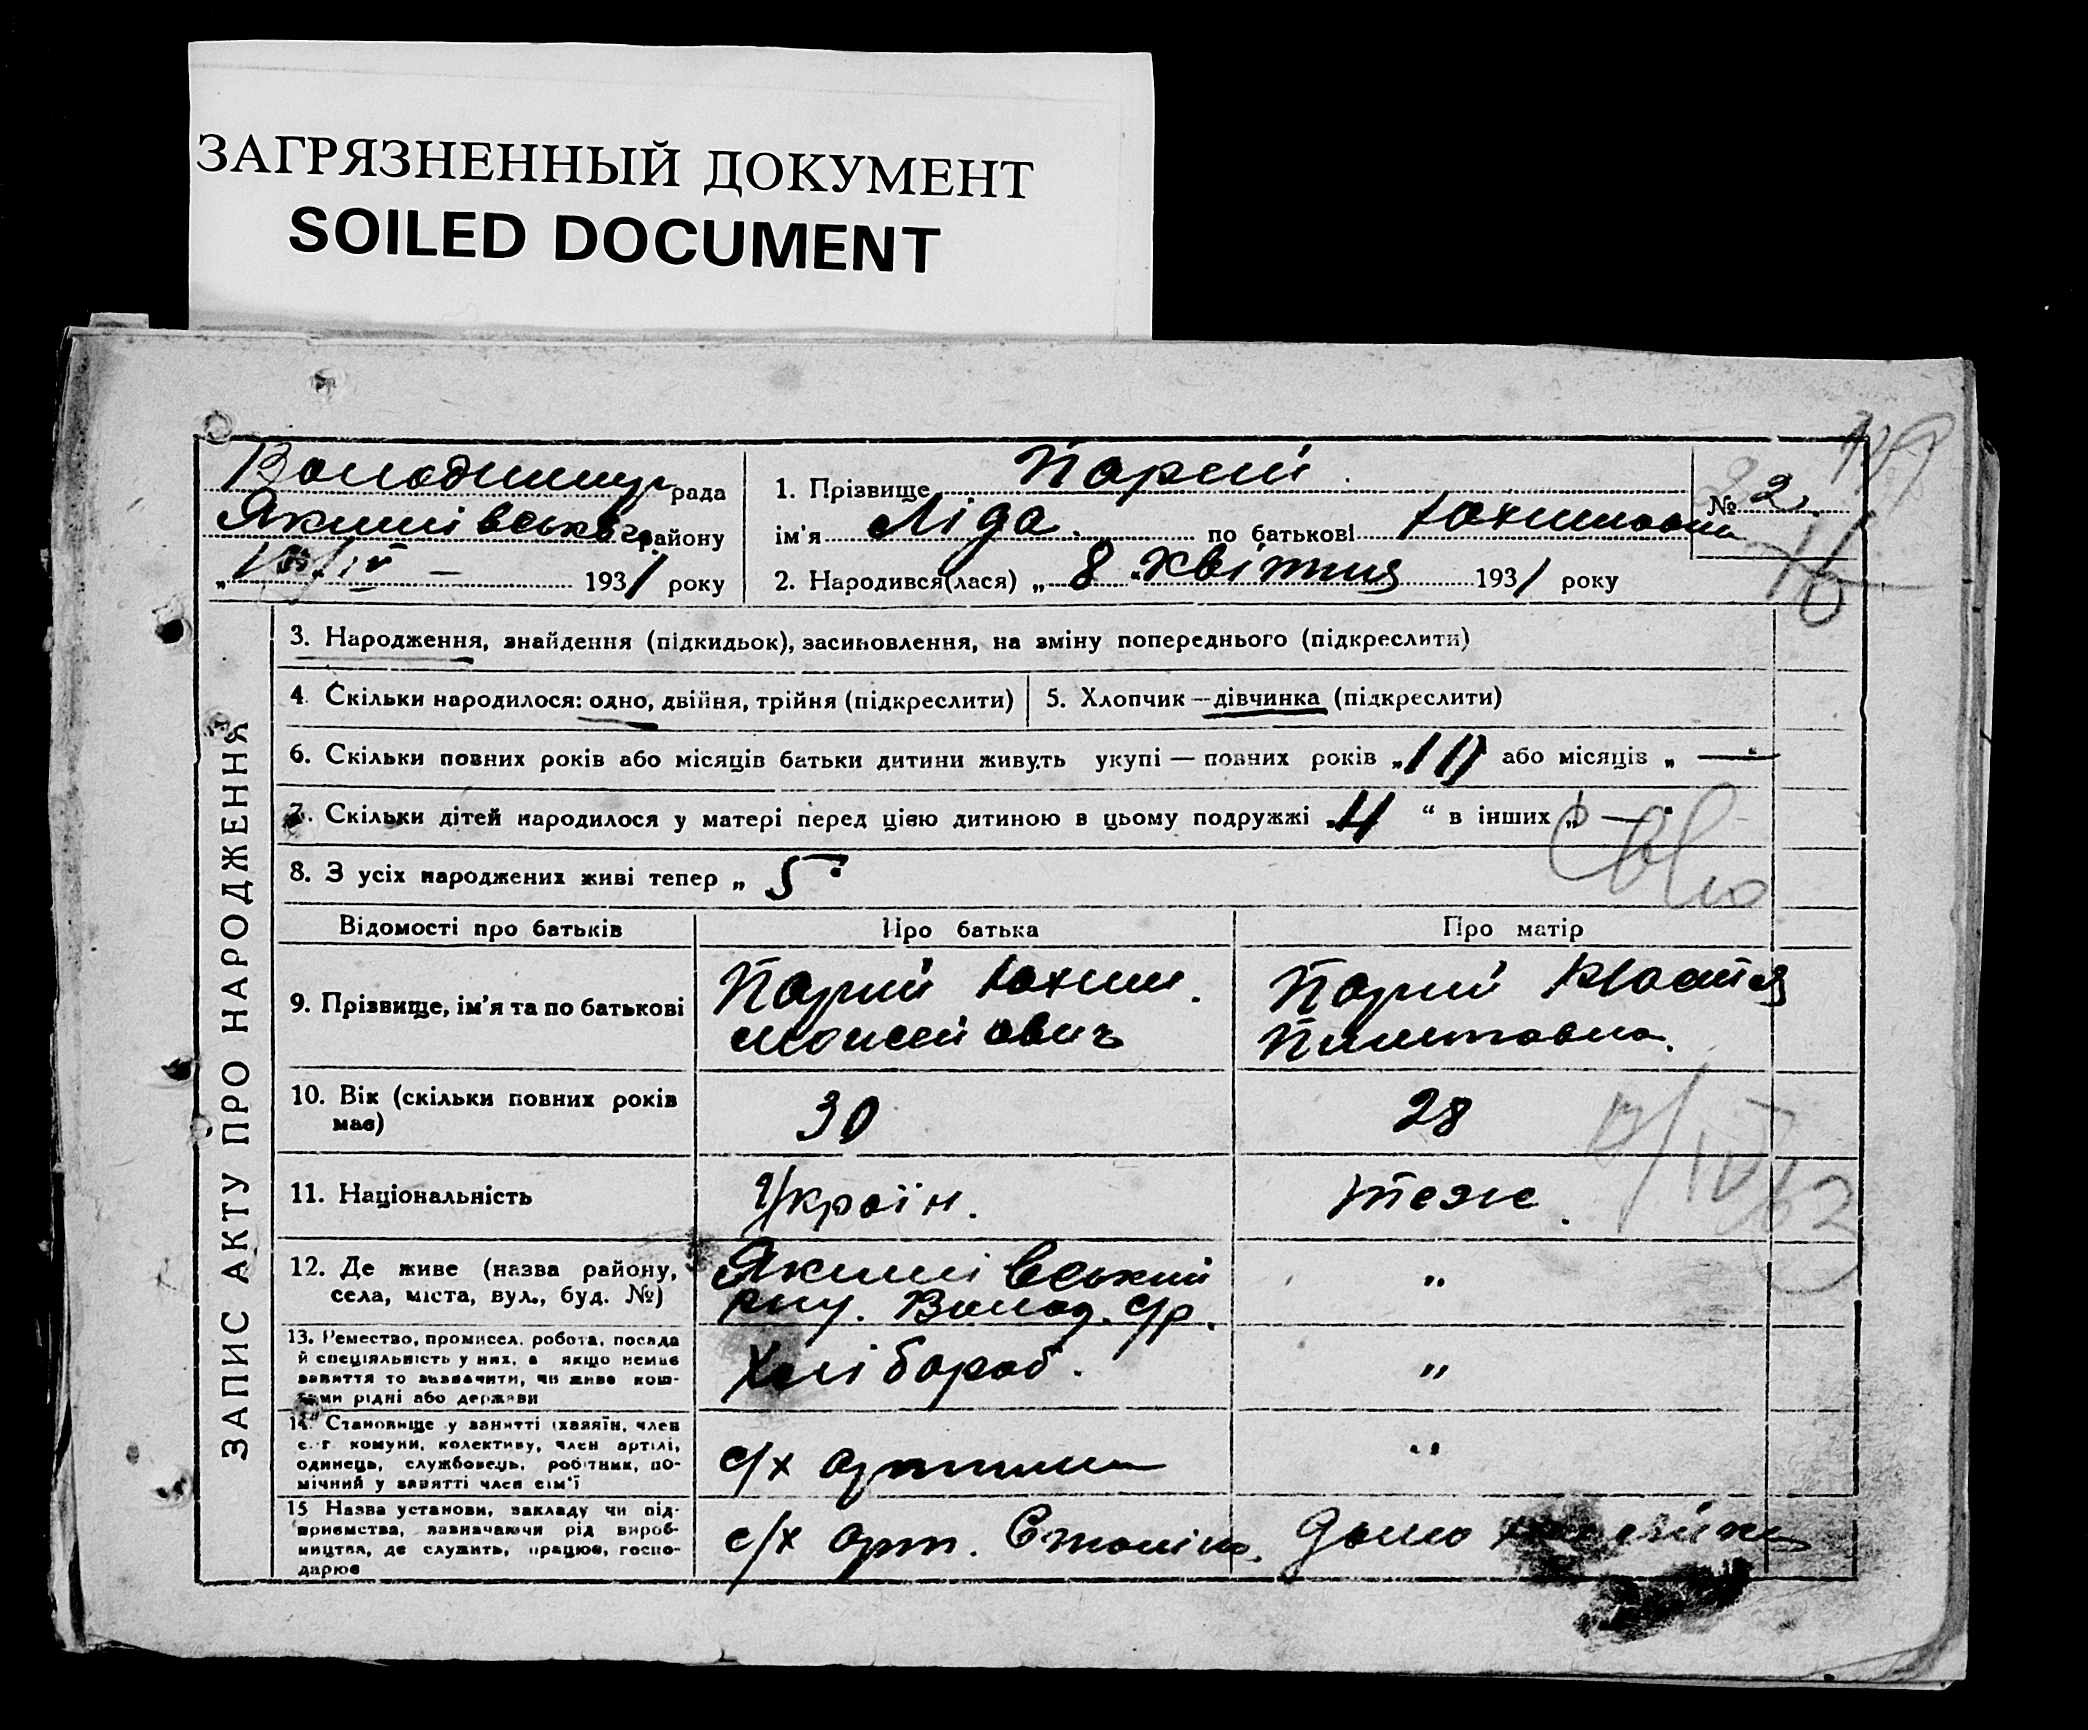 ЗАГРЯЗНЕННЫЙ ДОКУМЕНТ
SOILED DOCUMENT
рада
Якимівського району
1931 року
1. Прізвище Парий
№ 2
ім'я Ліда по батькові Юхимовна
2. Народився(лася) „ 8 " Квітня 1931 року
ЗАПИС АКТУ ПРО НАРОДЖЕННЯ
3. Народження, знайдення (підкидьок), засиновлення, на зміну попереднього (підкреслити)
4. Скільки народилося: одно, двійня, трійня (підкреслити)
5. Хлопчик — дівчинка (підкреслити)
6. Скільки повних років або місяців батьки дитини живуть укупі — повних років „ 10 або місяців „ —
7. Скільки дітей народилося у матері перед цією дитиною в цьому подружжі „ 4 “ в інших „ —
8. З усіх народжених живі тепер „ 5
Відомості про батьків
Про батька
Про матір
9. Прізвище, ім'я та по батькові
Парий Юхим
Мойсейович
Парий
10. Вік (скільки повних років
має)
30
28
11. Національність
Україн.
теж.
12. Де живе (назва району,
села, міста, вул., буд. №)
Якимівський
Волод. с/р.
"
13. Ремество, промисел, робота, посада
й спеціяльність у них, а якщо немає
заняття то зазначити, чи живе кош-
тами рідні або держави
Хлібороб.
"
14. Становище у занятті (хазяїн, член
с.-г. комуни, колективу, член артілі,
одинець, службовець, робітник, по-
мічний у занятті член сім'ї
с/х
"
15 Назва установи, закладу чи під-
приємства, зазначаючи рід вироб-
ництва, де служить, працює, госпо-
дарює
с/х арт.